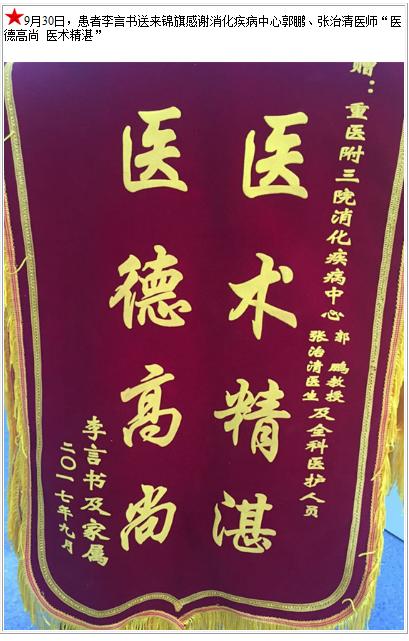 ★9月30日，患者李言书送来锦旗感谢消化疾病中心郭鹏、张治清医师“医
德高尚 医术精湛”
赠：重医附三院消化疾病中心 郭鹏教授
张治清医生 及全科医护人员
医术精湛
医德高尚
李言书及家属
二〇一七年九月